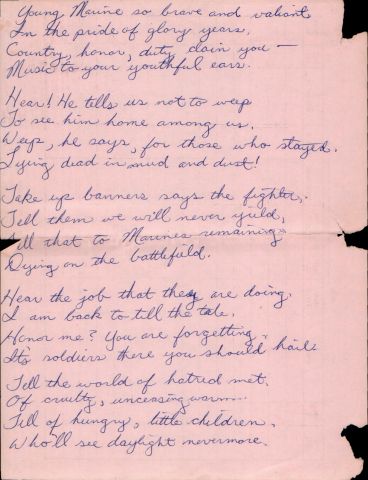 Young Marine so brave and valiant
In the pride of glory years.
Country, honor, duty claim you —
Music to your youthful ears.
Hear! He tells us not to weep
To see him home among us.
Weep, he says, for those who stayed.
Lying dead in mud and dust!
Take up banners says the fighter,
Tell them we will never yield,
All that to Marines remaining
Dying on the battlefield.
Hear the job that they are doing.
I am back to till the tale.
Honor me? You are forgetting,
Its soldiers there you should hail.
Tell the world of hatred met.
Of cruelty, unceasing
Tell of hungry, little children.
Who'll see daylight nevermore.